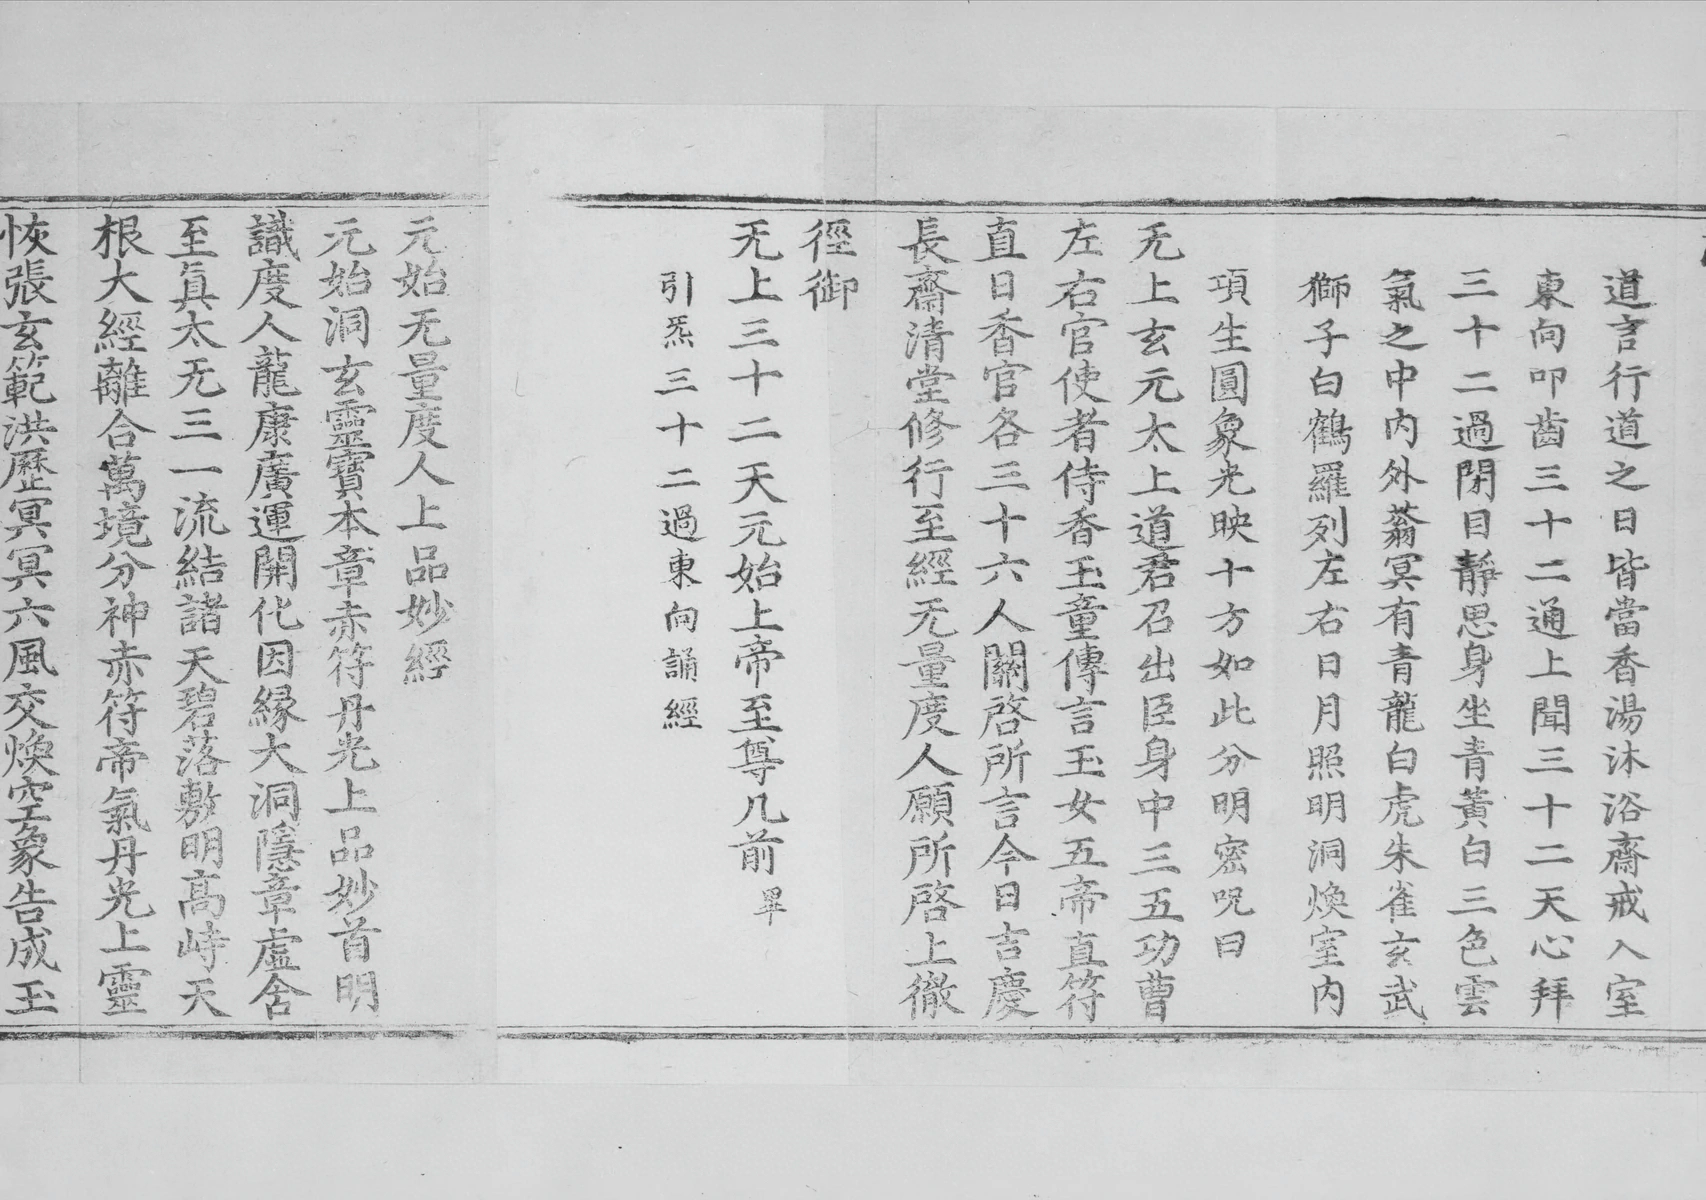 道言行道之日皆當香湯沐浴齋戒入室
東向叩齒三十二通上聞三十二天心拜
三十二過閉目靜思身坐青黃白三色雲
氣之中内外蓊冥有青龍白虎朱雀玄武
獅子白鶴羅列左右日月照明洞煥室内
項生圓象光映十方如此分明密呪曰
无上玄元太上道君召出臣身中三五功曹
左右官使者侍香玉童傳言玉女五帝直符
直日香官各三十六人關啓所言今日吉慶
長齋清堂修行至經无量度人願所啓上徹
徑御
无上三十二天元始上帝至尊几前畢
引炁三十二過東向誦經
元始无量度人上品妙經
元始洞玄靈寶本章赤符丹光上品妙首明
識度人龍康廣運開化因緣大洞隱章虛含
至真太无三一流結諸天碧落敷明高峙天
根大經離合萬境分神赤符帝氣丹光上靈
恢張玄範洪歷冥冥六風交煥空象告成玉